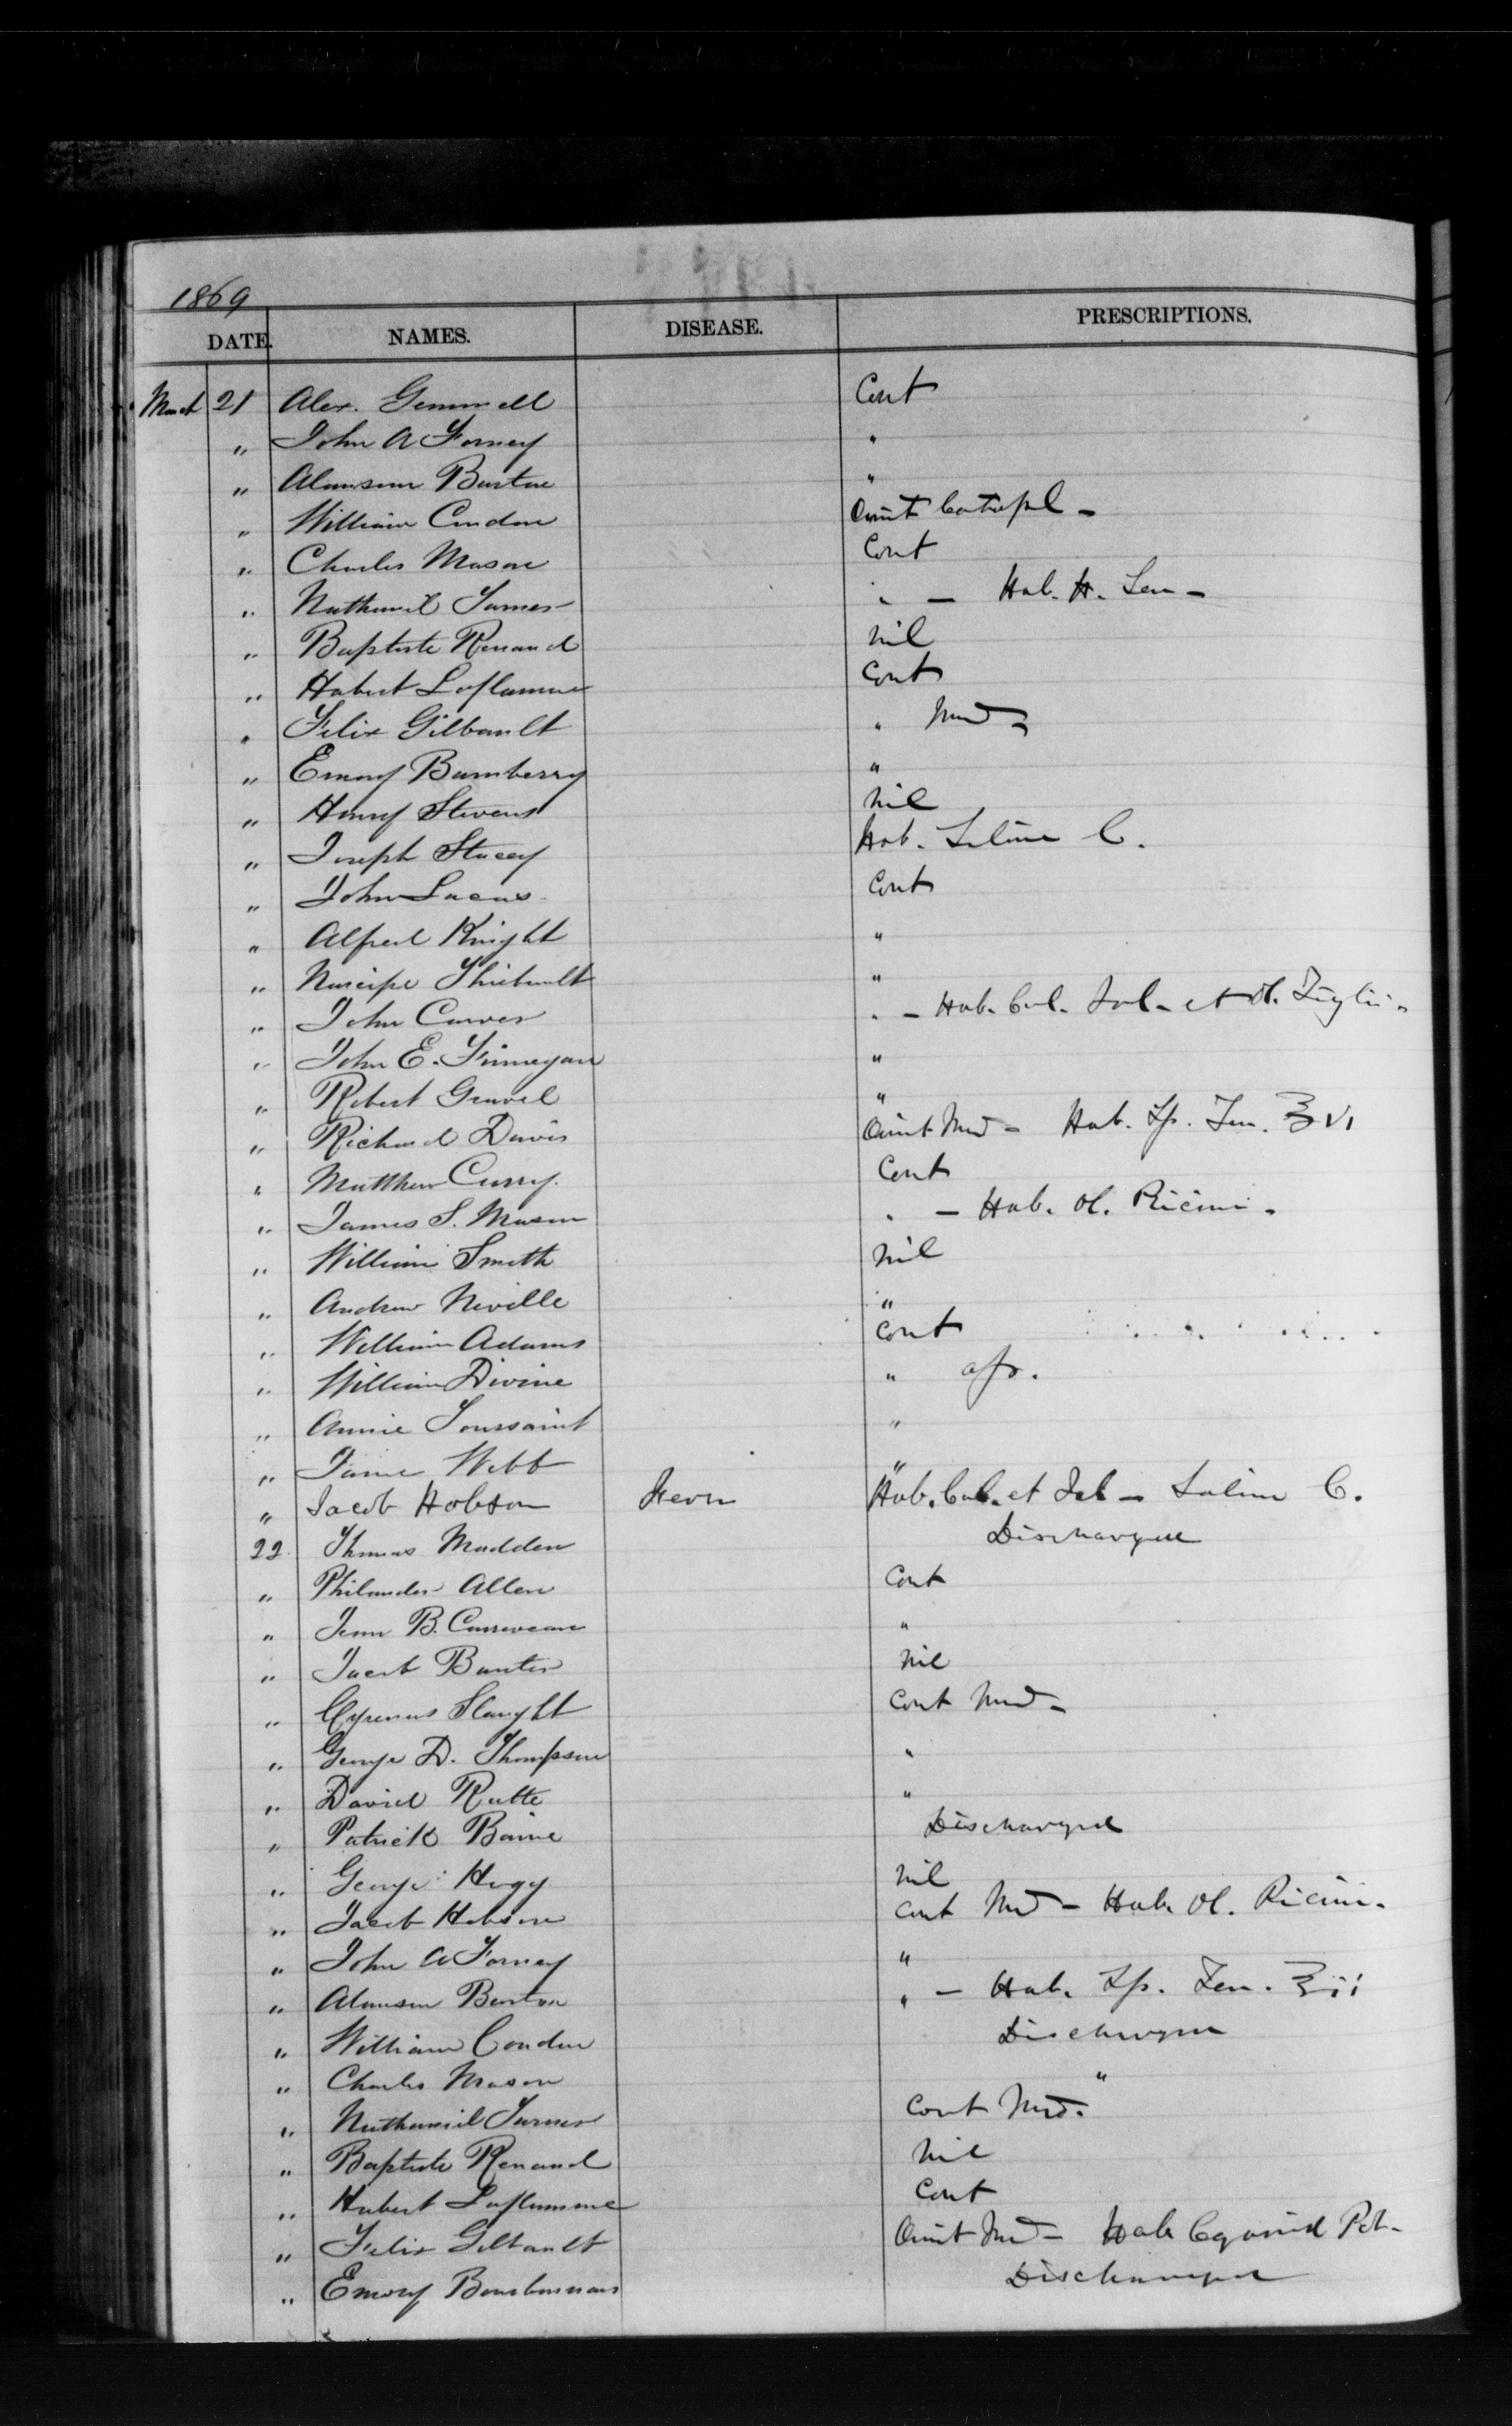 1869
DATE. NAMES. DISEASE. PRESCRIPTIONS.
March 21 Alex. Gemmell Cont
" John A Forney "
" Alanson Burton "
" William Condon Omit Catapl -
" Charles Mason Cont
" Nathaniel Turner " - Hab. H. Sen -
" Baptiste Renaud Nil
" Hubert Laflamme Cont
" Felix Gilbault " Med -
" Emory Bumberry "
" Henry Stevens Nil
" Joseph Stacey Hab. Saline C.
" John Lucas Cont
" Alfred Knight "
" Narcipe Thibault "
" John Carver " - Hab. Cal. Jal - et Ol. Tiglii -
" John E. Finnegan "
" Robert Gravel "
" Richard Davis Omit Med - Hab. Sp. Fru. ℥ VI
" Matthew Curry Cont
" James S. Mason " - Hab. Ol. Ricini -
" William Smith Nil
" Andrew Neville "
" William Adams Cont
" William Divine "
" Annie Toussaint "
" Jane Webb "
" Jacob Hobson Fever Hab. Cal. et Jal - Saline C.
22 Thomas Madden Discharged
" Philander Allen Cont
" Jean B. "
" Jacob Nil
" Cyrenus Slaught Cont Med -
" George D. Thompson "
" David Rutte "
" Patrick Discharged
" George Nil
" Jacob Hobson Cont Med - Hab Ol. Ricini -
" John A Forney "
" Alanson Burton " - Hab. Sp. Fru. ℥ii
" William Condon Discharged
" Charles Mason "
" Nathaniel Turner Cont Med -
" Baptiste Renaud Nil
" Hubert Laflamme Cont
" Felix Gilbault Omit Med - Hab Cyanid Pot -
" Emory Discharged